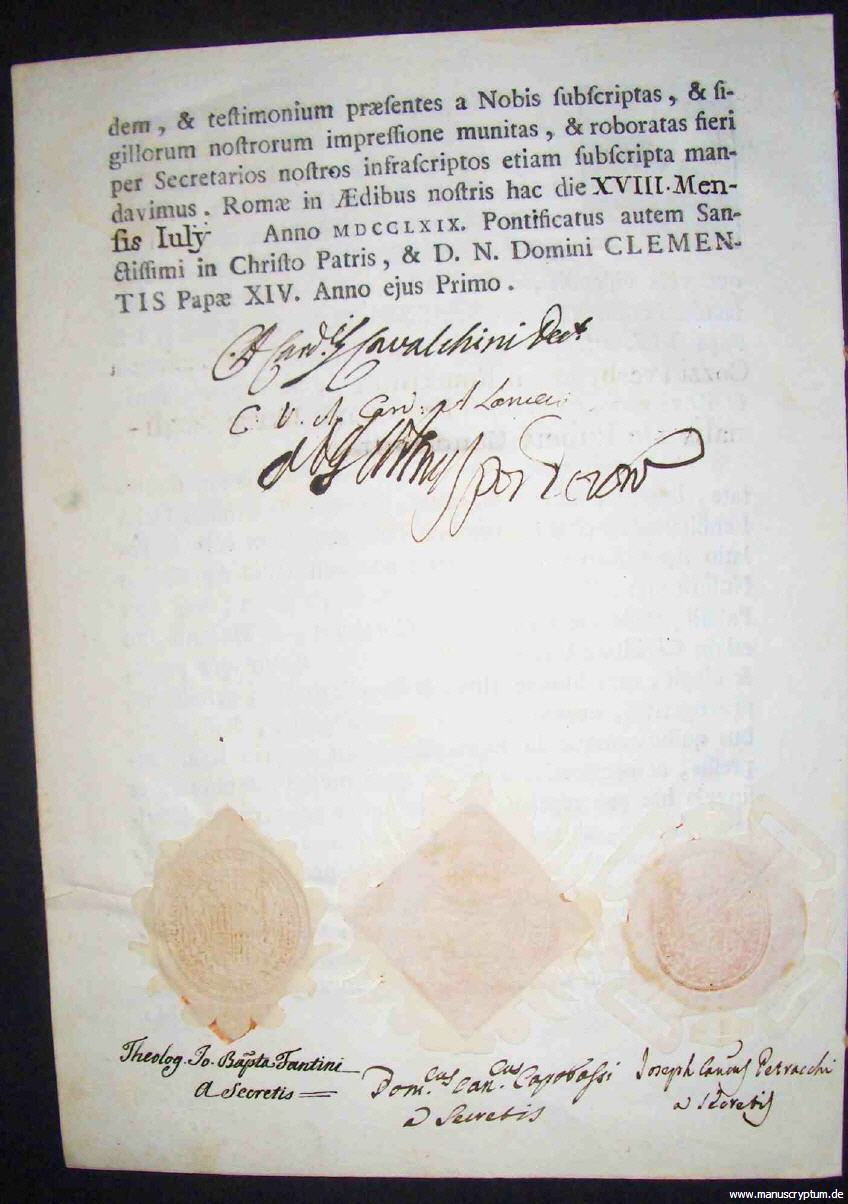 dem, & teſtimonium præſentes a Nobis ſubſcriptas, & ſi-
gillorum noſtrorum impreſſione munitas, & roboratas fieri
per Secretarios noſtros infraſcriptos etiam ſubſcripta man-
davimus. Romæ in Ædibus noſtris hac die XVIII. Men-
ſis Iulÿ Anno MDCCLXIX. Pontificatus autem San-
ctiſſimi in Chriſto Patris, & D. N. Domini CLEMEN-
TIS Papæ XIV. Anno ejus Primo.
Card. Cavalchini
C. V. A. Card.
Theolog. Jo. Bapta Fantini
A Secretis
Dom.cus Can.cus Capobassi
a Secretis
Joseph Petracchi
a Secretis
www.manuscryptum.de